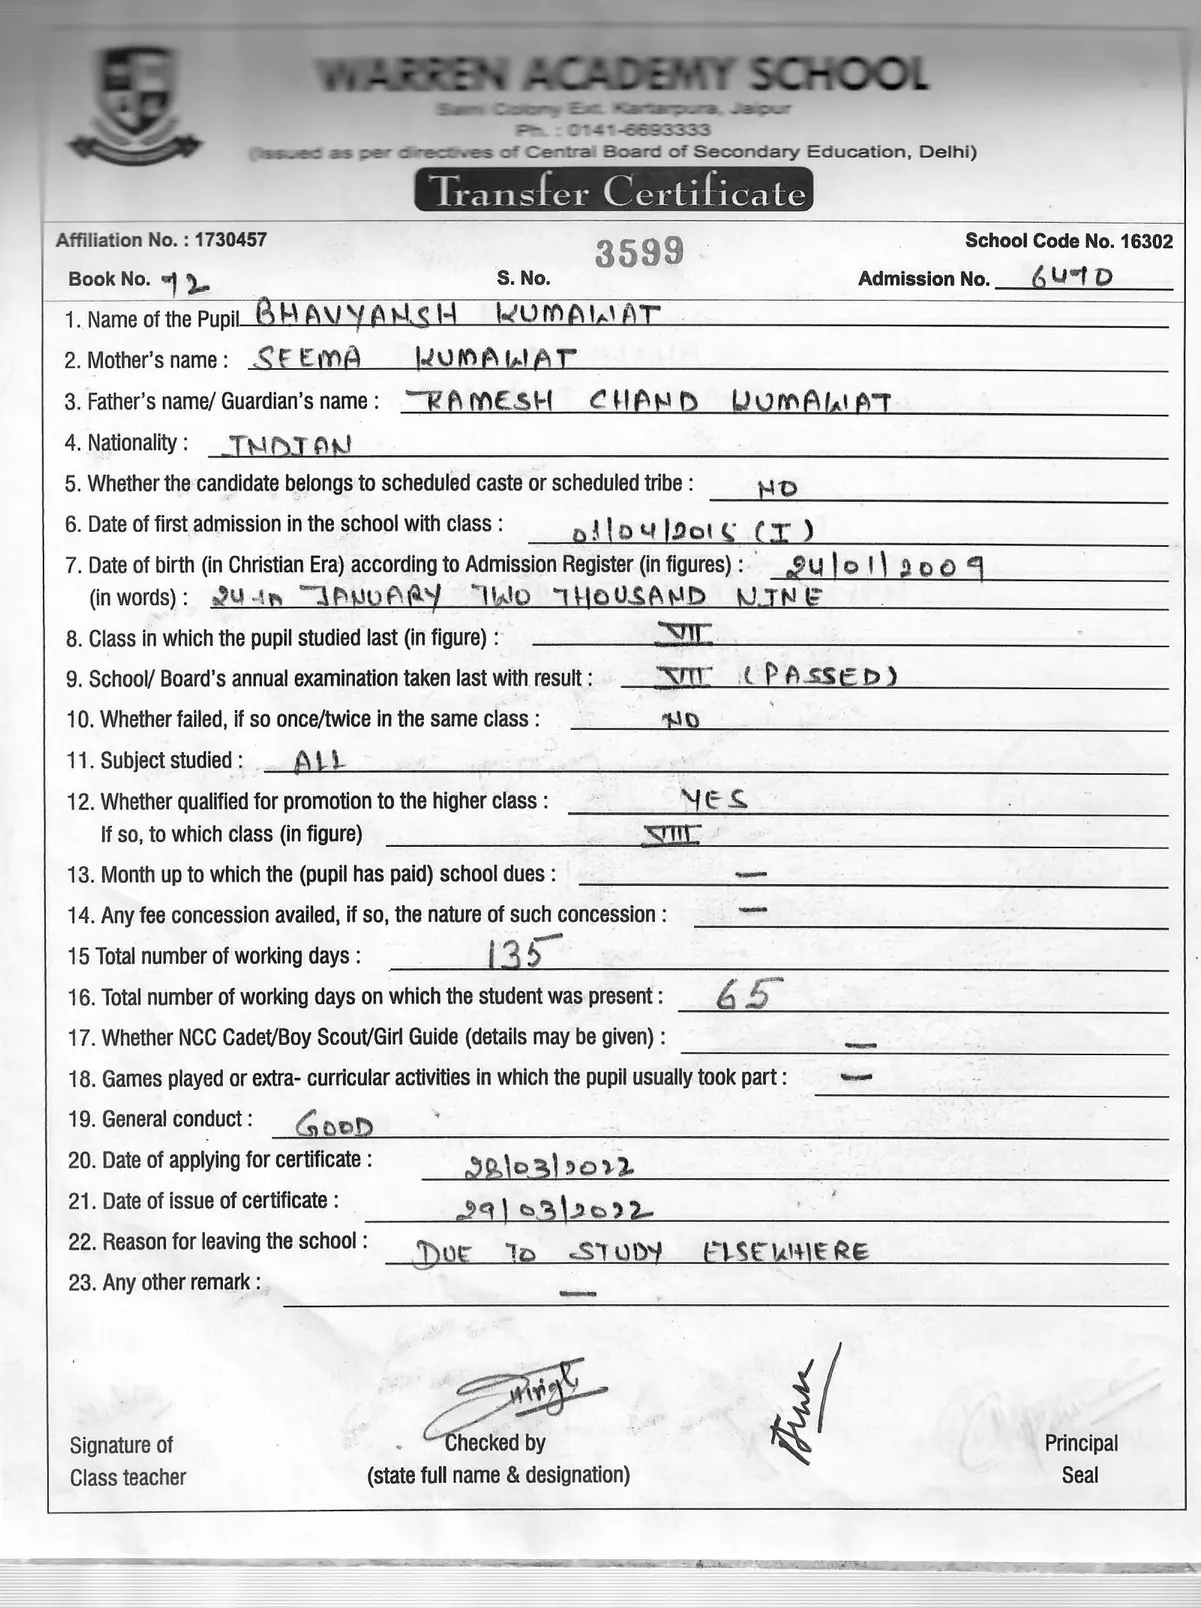 WARREN ACADEMY SCHOOL
Saini Colony Ext. Kartarpura, Jaipur
Ph. : 0141-6693333
(Issued as per directives of Central Board of Secondary Education, Delhi)
Transfer Certificate
Affiliation No. : 1730457 3599 School Code No. 16302
Book No. 72 S. No. Admission No. 6470
1. Name of the Pupil BHAVYANSH KUMAWAT
2. Mother's name : SEEMA KUMAWAT
3. Father's name/ Guardian's name : RAMESH CHAND KUMAWAT
4. Nationality : INDIAN
5. Whether the candidate belongs to scheduled caste or scheduled tribe : NO
6. Date of first admission in the school with class : 01/04/2015 (I)
7. Date of birth (in Christian Era) according to Admission Register (in figures) : 24/01/2009
(in words) : 24th JANUARY TWO THOUSAND NINE
8. Class in which the pupil studied last (in figure) : VII
9. School/ Board's annual examination taken last with result : VII (PASSED)
10. Whether failed, if so once/twice in the same class : NO
11. Subject studied : ALL
12. Whether qualified for promotion to the higher class : YES
If so, to which class (in figure) VIII
13. Month up to which the (pupil has paid) school dues : —
14. Any fee concession availed, if so, the nature of such concession : —
15 Total number of working days : 135
16. Total number of working days on which the student was present : 65
17. Whether NCC Cadet/Boy Scout/Girl Guide (details may be given) : —
18. Games played or extra- curricular activities in which the pupil usually took part : —
19. General conduct : GOOD
20. Date of applying for certificate : 28/03/2022
21. Date of issue of certificate : 29/03/2022
22. Reason for leaving the school : DUE TO STUDY ELSEWHERE
23. Any other remark : —
Signature of Checked by Principal
Class teacher (state full name & designation) Seal